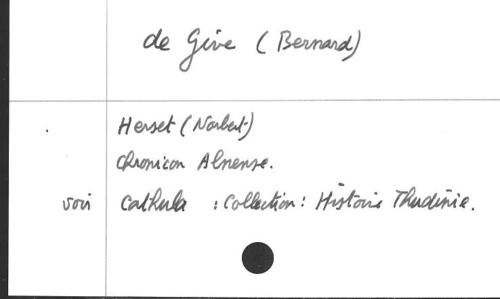 de Give (Bernard)
Herset (Norbert)
Chronicon Alnense.
voir Cathula : Collection : Histoire Thudinie.